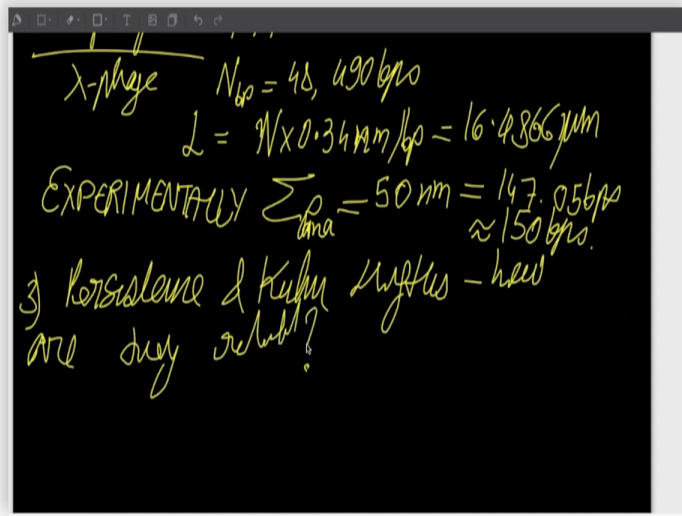 λ-phage N_bp = 48, 490 bps
L = N x 0.34 nm/bp = 16.4866 μm
EXPERIMENTALLY ξ_p DNA = 50 nm = 147.05 bps
≈ 150 bps.
3) Persistence & Kuhn lengths - how
are they related?